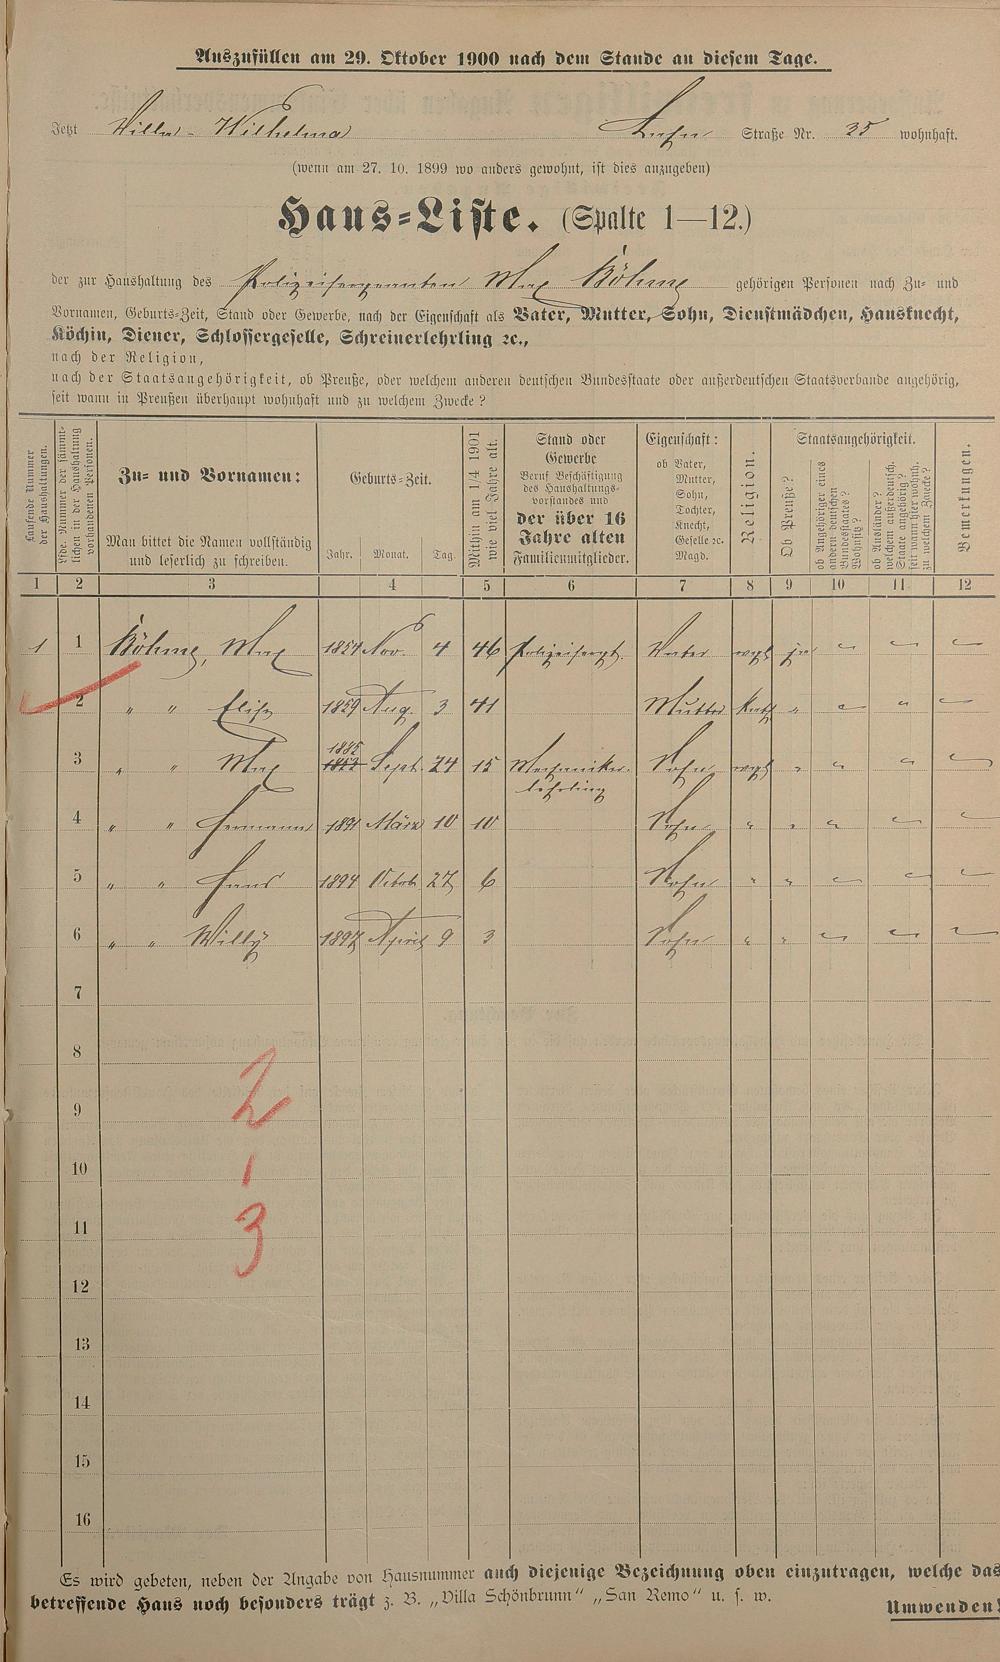 Auszufüllen am 29. Oktober 1900 nach dem Stande an diesem Tage.
Jetzt Villa - Wilhelma Straße Nr. 35 wohnhaft.
(wenn am 27. 10. 1899 wo anders gewohnt, ist dies anzugeben)
Haus-Liste. (Spalte 1—12.)
der zur Haushaltung des Polizeisergeanten Max Böhme gehörigen Personen nach Zu- und
Vornamen, Geburts-Zeit, Stand oder Gewerbe, nach der Eigenschaft als Vater, Mutter, Sohn, Dienstmädchen, Hausknecht,
Köchin, Diener, Schlossergeselle, Schreinerlehrling ꝛc.,
nach der Religion,
nach der Staatsangehörigkeit, ob Preuße, oder welchem anderen deutschen Bundesstaate oder außerdeutschen Staatsverbande angehörig,
seit wann in Preußen überhaupt wohnhaft und zu welchem Zwecke?
Laufende Nummer der Haushaltungen.
Lfde. Nummer der sämmtlichen in der Haushaltung vorhandenen Personen.
Zu- und Vornamen:
Man bittet die Namen vollständig
und leserlich zu schreiben.
Geburts-Zeit.
Jahr. Monat. Tag.
Mithin am 1/4 1901
wie viel Jahre alt.
Stand oder
Gewerbe
Beruf Beschäftigung
des Haushaltungs-
vorstandes und
der über 16
Jahre alten
Familienmitglieder.
Eigenschaft:
ob Vater,
Mutter,
Sohn,
Tochter,
Knecht,
Geselle ꝛc.
Magd.
Religion.
Staatsangehörigkeit.
Ob Preuße?
ob Angehöriger eines
andern deutschen
Bundesstaates?
Wohnsitz?
ob Ausländer?
welchem außerdeutsch.
Staate angehörig?
seit wann hier wohnh.
zu welchem Zwecke?
Bemerkungen.
1 2 3 4 5 6 7 8 9 10 11 12
1 1 Böhme, Max 1854 Nov. 4 46 Polizeisergt. Vater evgl ja " " —
2 " " Elise 1859 Aug. 3 41 Mutter kath " " " —
3 " " Max 1885 1853 Sept. 24 15 Mechaniker- Sohn evgl " " " —
lehrling
4 " " Hermann 1891 März 10 10 Sohn " " " " —
5 " " Hans 1894 Octob. 27 6 Sohn " " " " —
6 " " Willy 1897 April 9 3 Sohn " " " " —
7
8
9
10
11
12
13
14
15
16
2
1
3
Es wird gebeten, neben der Angabe von Hausnummer auch diejenige Bezeichnung oben einzutragen, welche das
betreffende Haus noch besonders trägt z. B. „Villa Schönbrunn“ „San Remo“ u. s. w.
Umwenden!